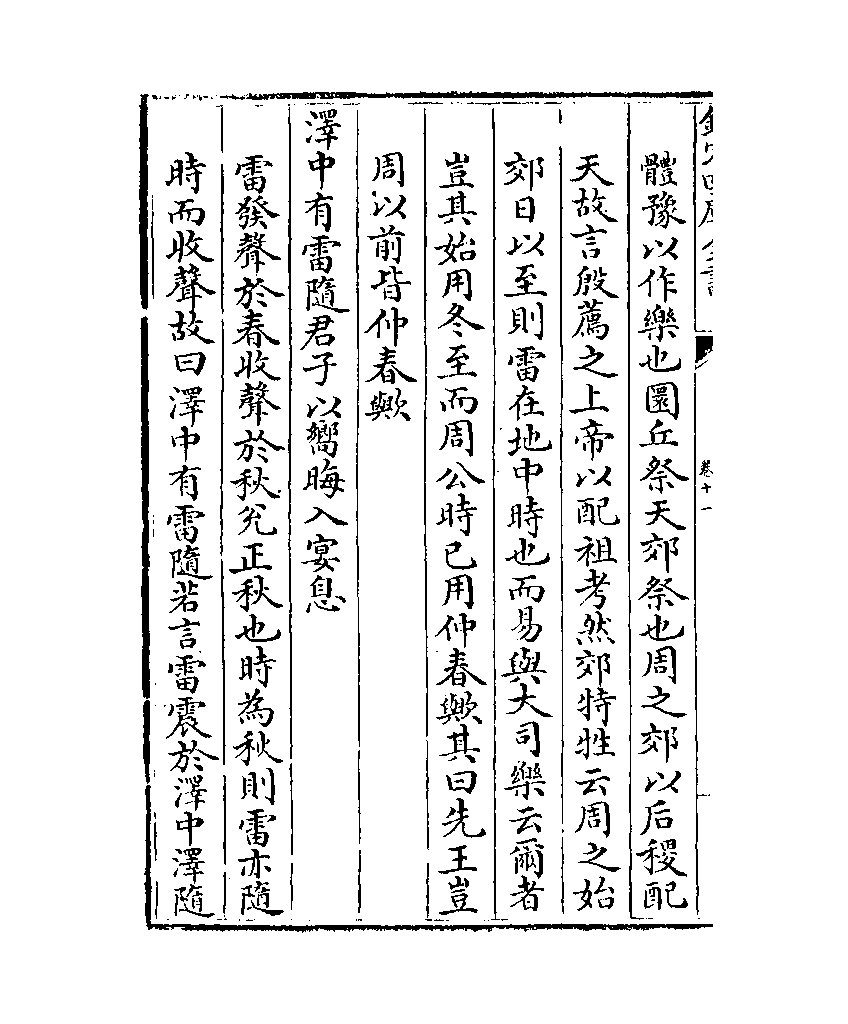 體豫以作樂也圜丘祭天郊祭也周之郊以后稷配
天故言殷薦之上帝以配祖考然郊特牲云周之始
郊日以至則雷在地中時也而易與大司樂云爾者
豈其始用冬至而周公時已用仲春歟其曰先王豈
周以前皆仲春歟
澤中有雷隨君子以嚮晦入宴息
雷發聲於春收聲於秋兊正秋也時為秋則雷亦隨
時而收聲故曰澤中有雷隨若言雷震於澤中澤隨
卷十一